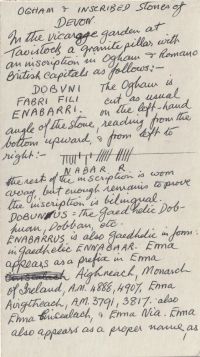 OGHAM & INSCRIBED STONES OF
DEVON.
In the vicarage garden at
Tavistock a granite pillar with
an inscription in Ogham & Romano
British capitals as follows:—
DOBUNI The Ogham is
FABRI FILI cut as usual
ENABARRI. on the left-hand
angle of the stone, reading from the
bottom upward, & from left to
right:—
NABAR R.
the rest of the inscription is worn
away, but enough remains to prove
the inscription is bilingual.
DOBUNUS = The Gaedhelic Dob-
huan, Dobban, etc.
ENABARRUS is also Gaedhelic in form:
in Gaedhelic ENNABAAR. Enna
appears as a prefix in Enna
Aighneach, Monarch
of Ireland, A.M. 4888, 4907, Enna
Airgtheach, A.M. 3791, 3817. also
Enna & Enna Nia. Enna
also appears as a proper name, as